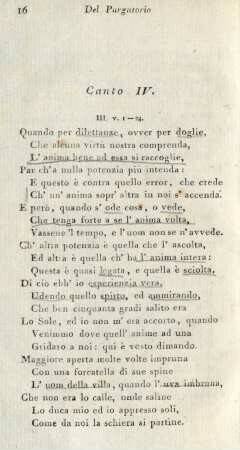 16 Del Purgatorio
Canto IV.
III. v. 1—24.
Quando per dilettanze, ovver per doglie,
Che alcuna virtù nostra comprenda,
L' anima bene ad essa si raccoglie,
Par ch' a nulla potenzia più intenda:
E questo è contra quello error, che crede
Ch' un' anima sopr' altra in noi s' accenda.
E però, quando s' ode cosa, o vede,
Che tenga forte a se l' anima volta,
Vassene 'l tempo, e l' uom non se n' avvede.
Ch' altra potenzia è quella che l' ascolta,
Ed altra è quella ch' ha l' anima intera:
Questa è quasi legata, e quella è sciolta.
Di ciò ebb' io esperienzia vera,
Udendo quello spirto, ed ammirando,
Che ben cinquanta gradi salito era
Lo Sole, ed io non m' era accorto, quando
Venimmo dove quell' anime ad una
Gridaro a noi: qui è vostro dimando.
Maggiore aperta molte volte impruna
Con una forcatella di sue spine
L' uom della villa, quando l' uva imbruna,
Che non era lo calle, onde saline
Lo duca mio ed io appresso soli,
Come da noi la schiera si partine.